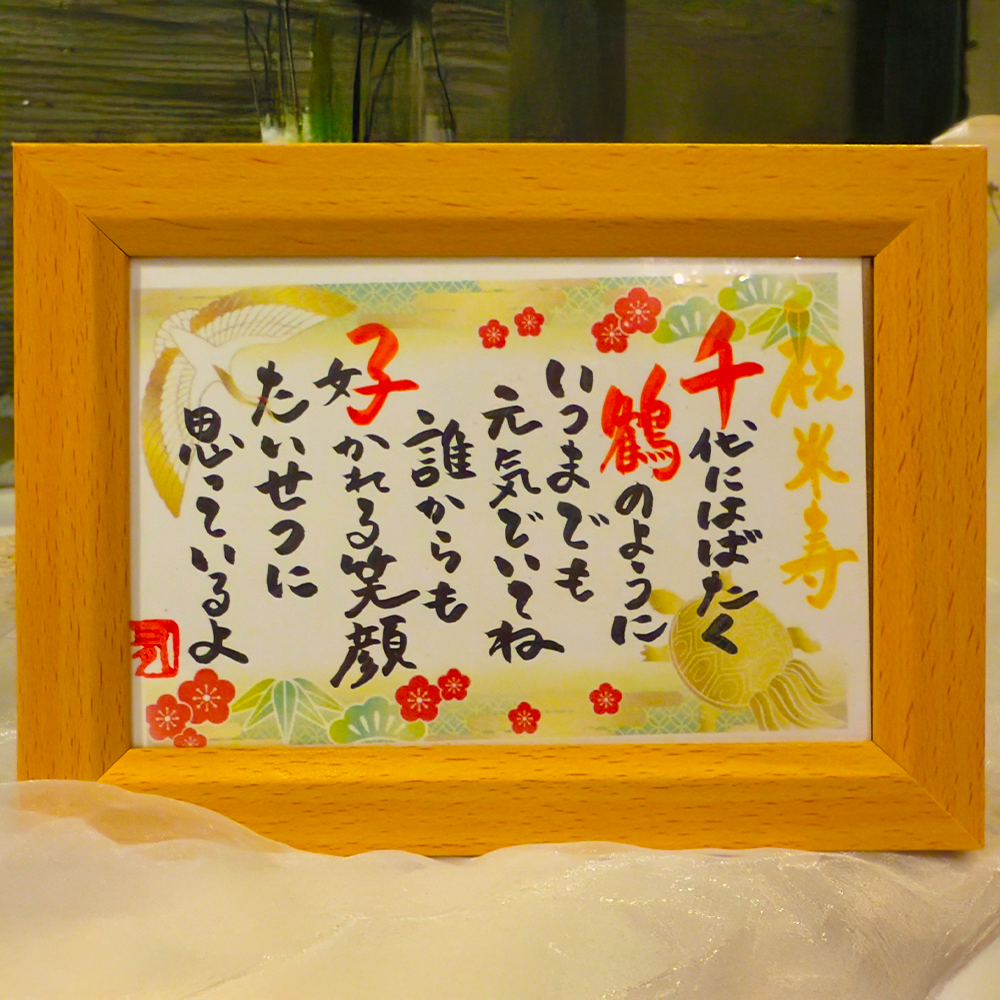 祝米寿
千代にはばたく
鶴のように
いつまでも
元気でいてね
誰からも
好かれる笑顔
たいせつに
思っているよ